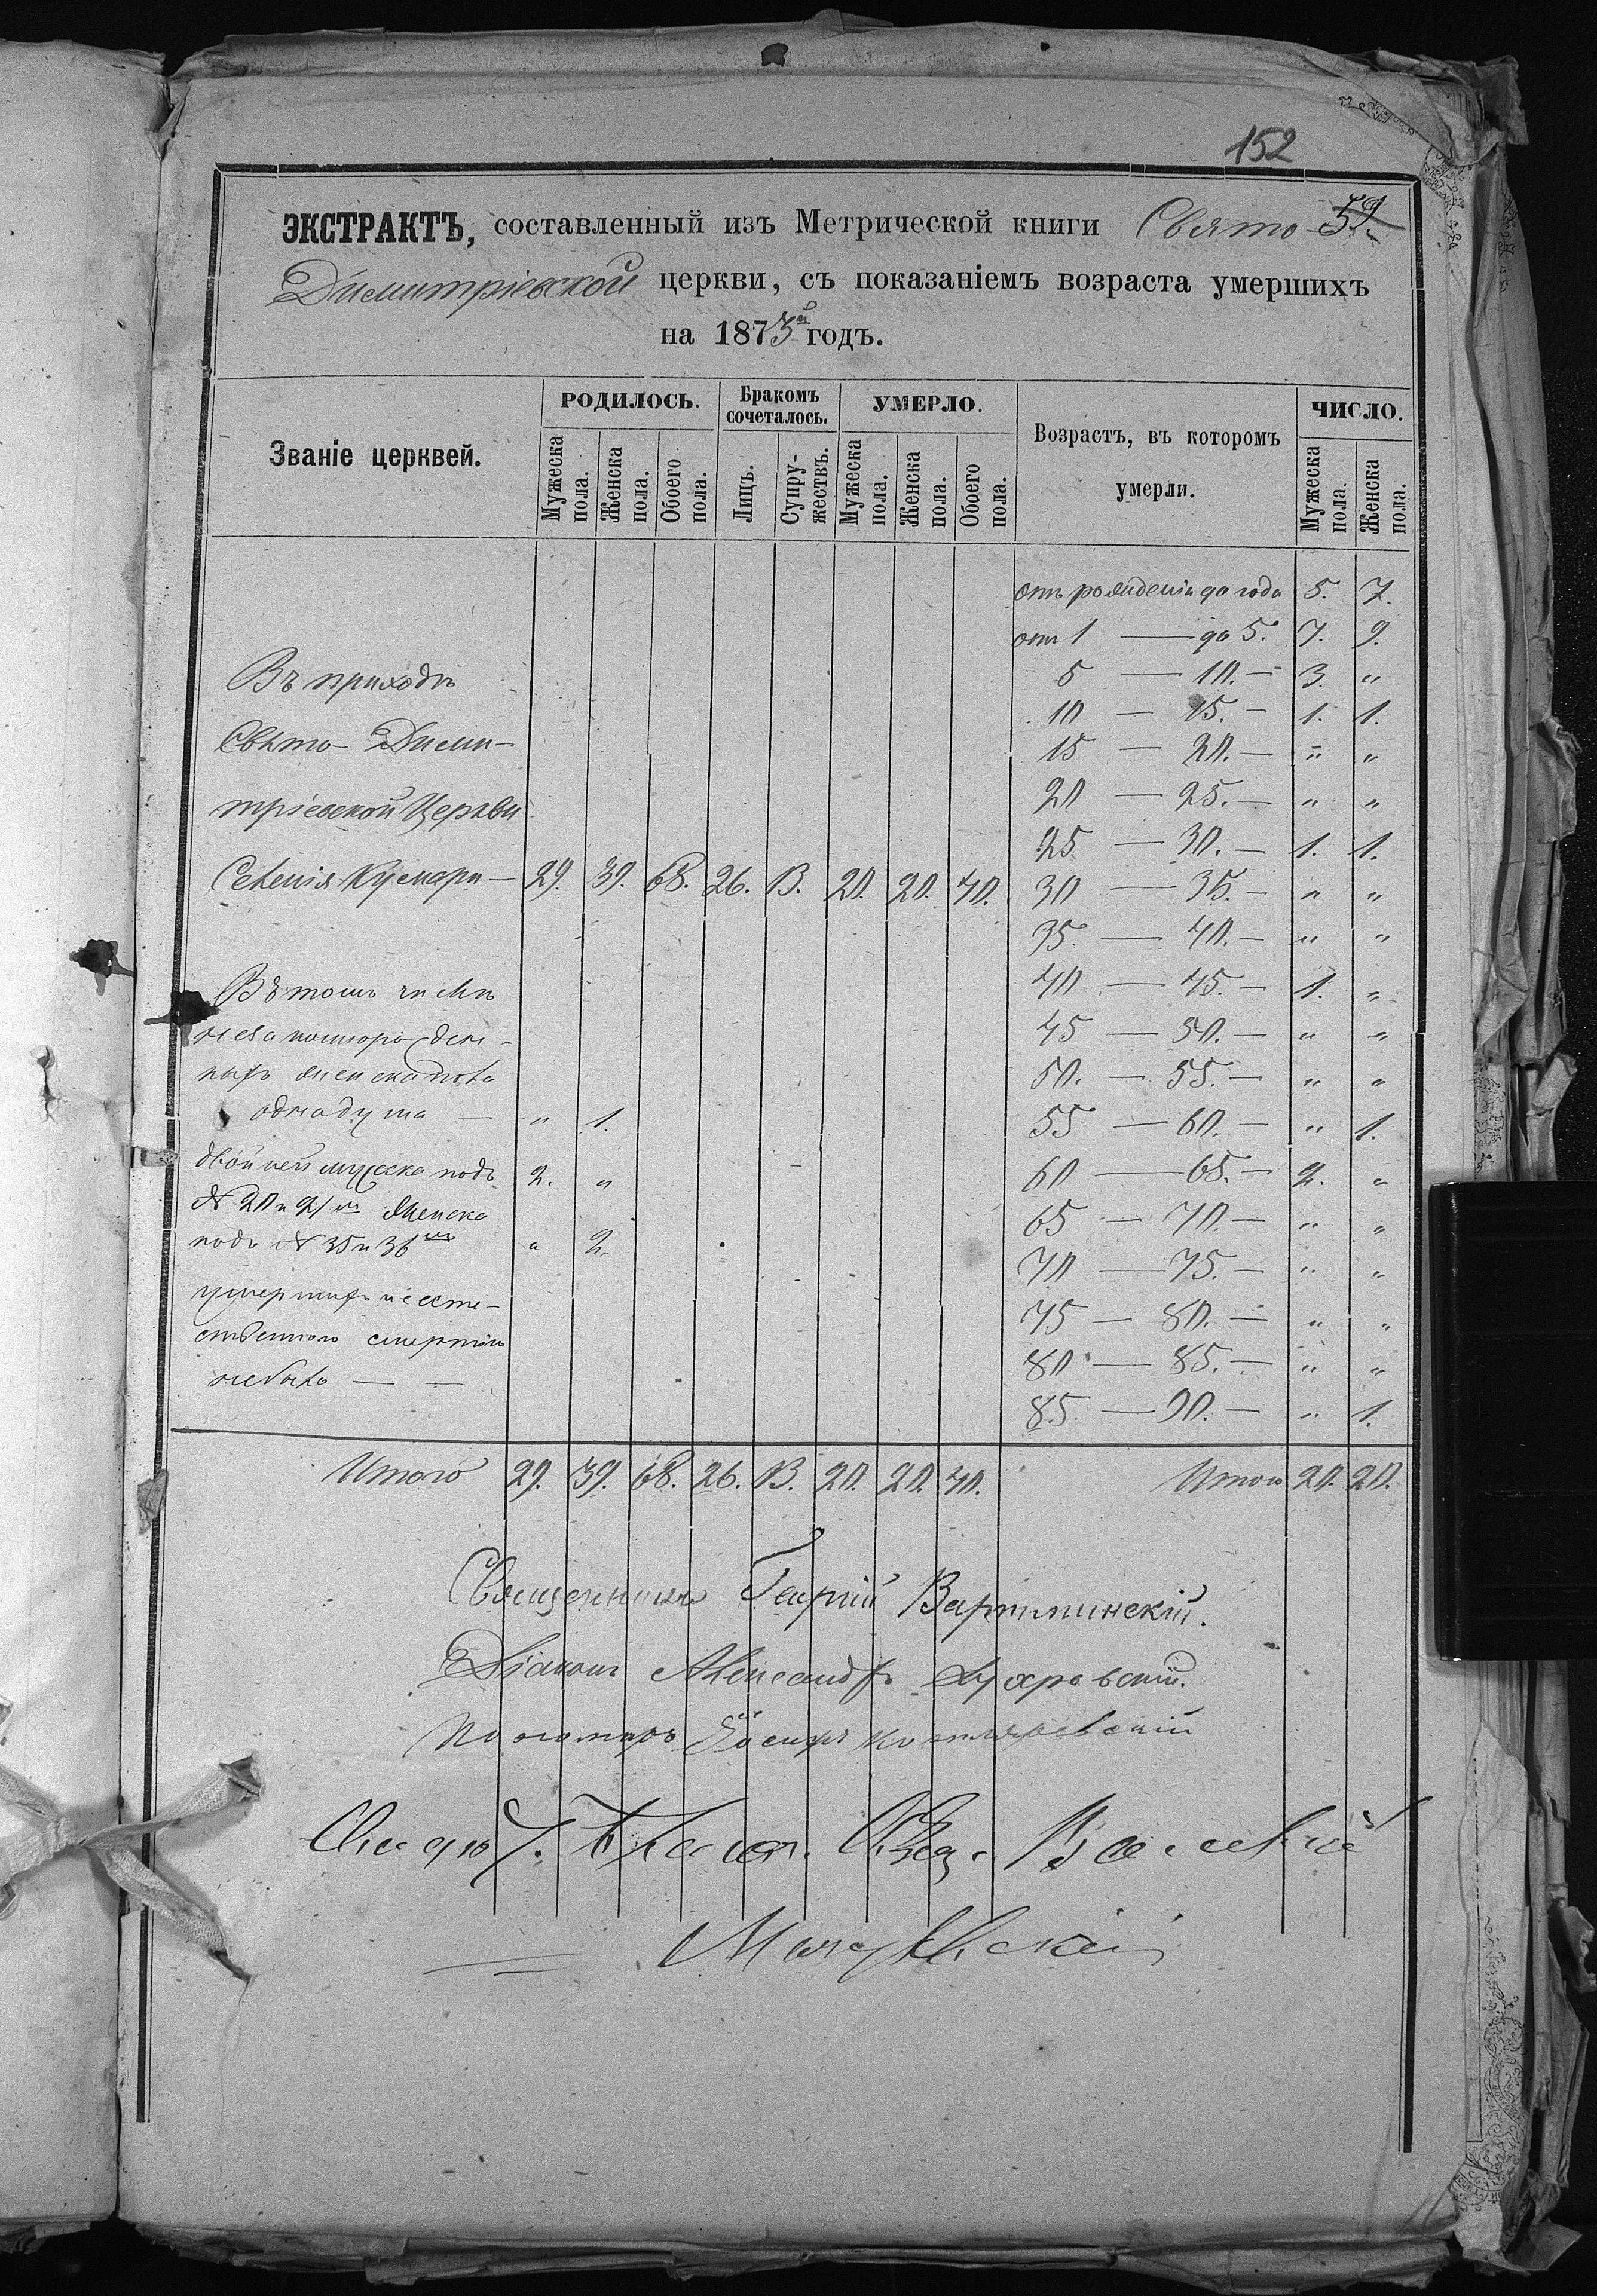 152
ЭКСТРАКТЪ, составленный изъ Метрической книги Свято- 59.
Димитріевской церкви, съ показаніемъ возраста умершихъ
на 1873й годъ.
Званіе церквей.
РОДИЛОСЬ.
Мужеска пола.
Женска пола.
Обоего пола.
Бракомъ сочеталось.
Лицъ.
Супружествъ.
УМЕРЛО.
Мужеска пола.
Женска пола.
Обоего пола.
Возрастъ, въ которомъ
умерли.
ЧИСЛО.
Мужеска пола.
Женска пола.
отъ рожденія до года 5. 7.
от 1 — до 5. 7. 9.
Въ приходѣ
5 — 10. — 3. „
10 — 15. — 1. 1.
Свято-Дими-
15 — 20. — „ „
тріевской Церкви
20 — 25. — „ „
25 — 30. — 1. 1.
Селенія Кусмари — 29. 39. 68. 26. 13. 20. 20. 40.
30 — 35. — „ „
35. — 40. — „ „
Въ томъ числѣ
40 — 45. — 1. „
незаконнорожден-
45 — 50. — „ „
ныхъ женска пола
50. — 55. — „ „
одна душа — „ 1.
55 — 60. — „ 1.
двойней мужеска подъ 2. „
60 — 65. — 2. „
№ 20 и 21м женска
65 — 70. — „ „
подъ № 35 и 36м „ 2.
70 — 75. — „ „
умершихъ неесте-
75 — 80. — „ „
ственною смертію
80 — 85. — „ „
небыло — —
85. — 90. — „ 1.
Итого 29. 39. 68. 26. 13. 20. 20. 40. Итого 20. 20.
Священникъ Георгій
Діаконъ Александръ
Пономарь Іосифъ